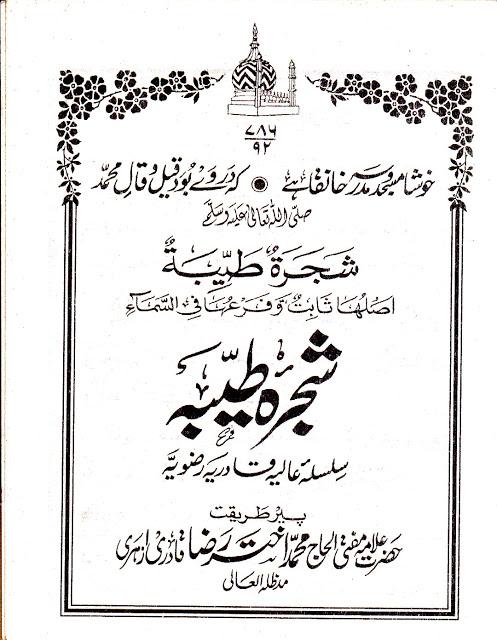 ۷۸۶
۹۲
خوشا مسجد و مدرسہ خانقاہے • کہ در وے بود قیل و قال محمد
صلی اللہ تعالیٰ علیہ وسلم
شَجَرَةٌ طَيِّبَةٌ
اصلها ثابتٌ وَّفرعها فی السَّمَآءِ
شجرۂ طیّبہ
سلسلۂ عالیہ قادریہ رضویّہ
پیر طریقت
حضرت علامہ مفتی الحاج محمد اختر رضا قادری ازہری
مدظلہ العالی